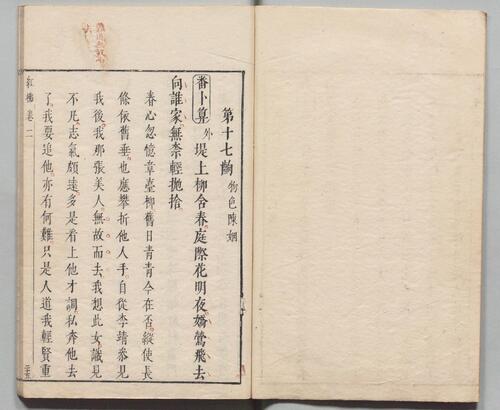 第十七齣 物色陳姻
番卜算 外 堤上柳含春庭際花明夜嬌鶯飛去
向誰家無柰輕拋捨
春心忽憶章臺柳舊日青青今在否縱使長
條依舊垂也應攀折他人手自從李靖叅見
我後我那張美人無故而去我想此女識見
不凡志氣頗遠多是看上他才調私奔他去
了我要追他亦有何難只是人道我輕賢重
紅拂卷二